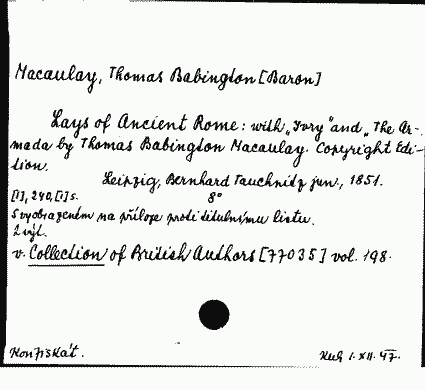 Macaulay, Thomas Babington [Baron]
Lays of Ancient Rome: with „Ivry" and „The Ar-
mada by Thomas Babington Macaulay. Copyright Edi-
tion.
Leipzig, Bernhard Tauchnitz jun., 1851.
[I], 240, [I] s. 8°
S vyobrazeném na příloze proti titulnímu listu.
2 výt.
v. Collection of British Authors [77035] vol. 198.
Konfiskát. 1. XII. 47.